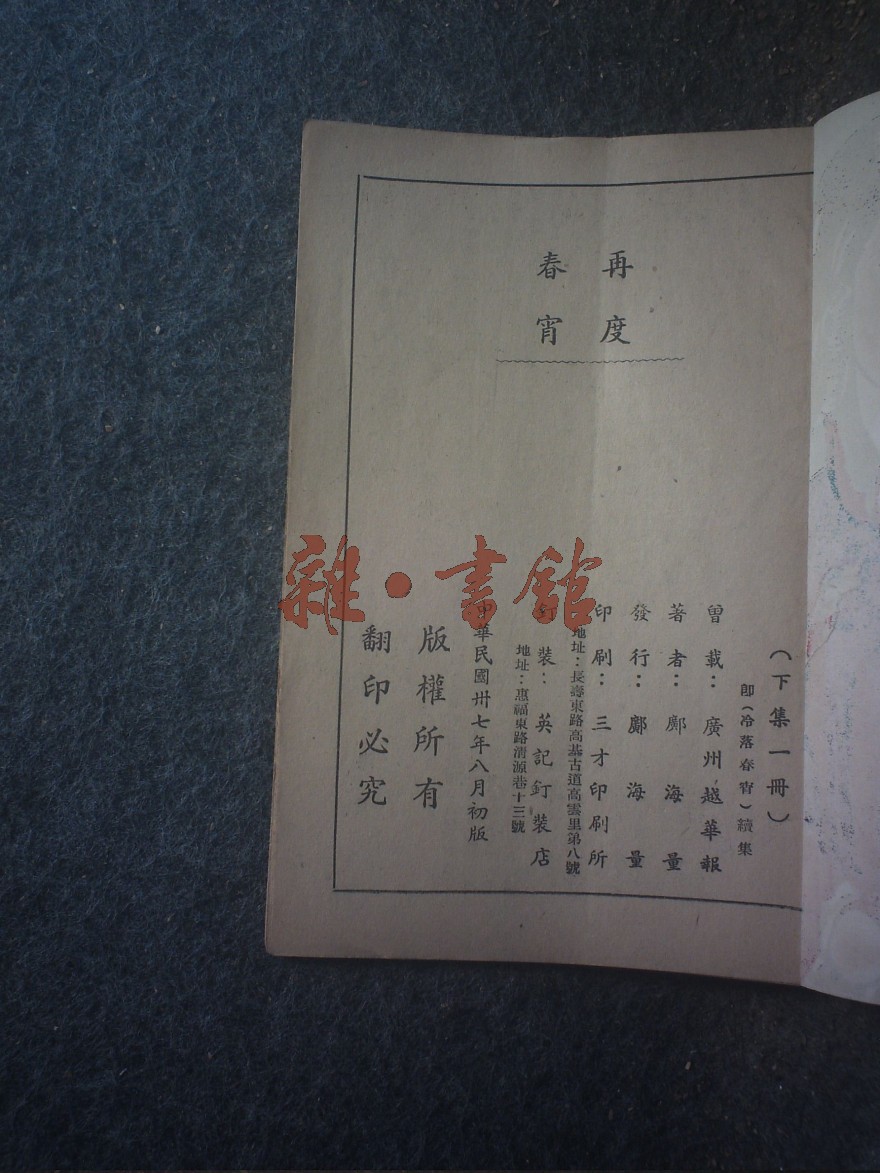 再度
春宵
（下集一冊）
卽（冷落春宵）續集
曾載：廣州越華報
著者：鄺海量
發行：鄺海量
印刷：三才印刷所
地址：長壽東路高基古道高雲里第八號
釘裝：英記釘裝店
地址：惠福東路清源巷十三號
中華民國卅七年八月初版
版權所有
翻印必究
雜·書館